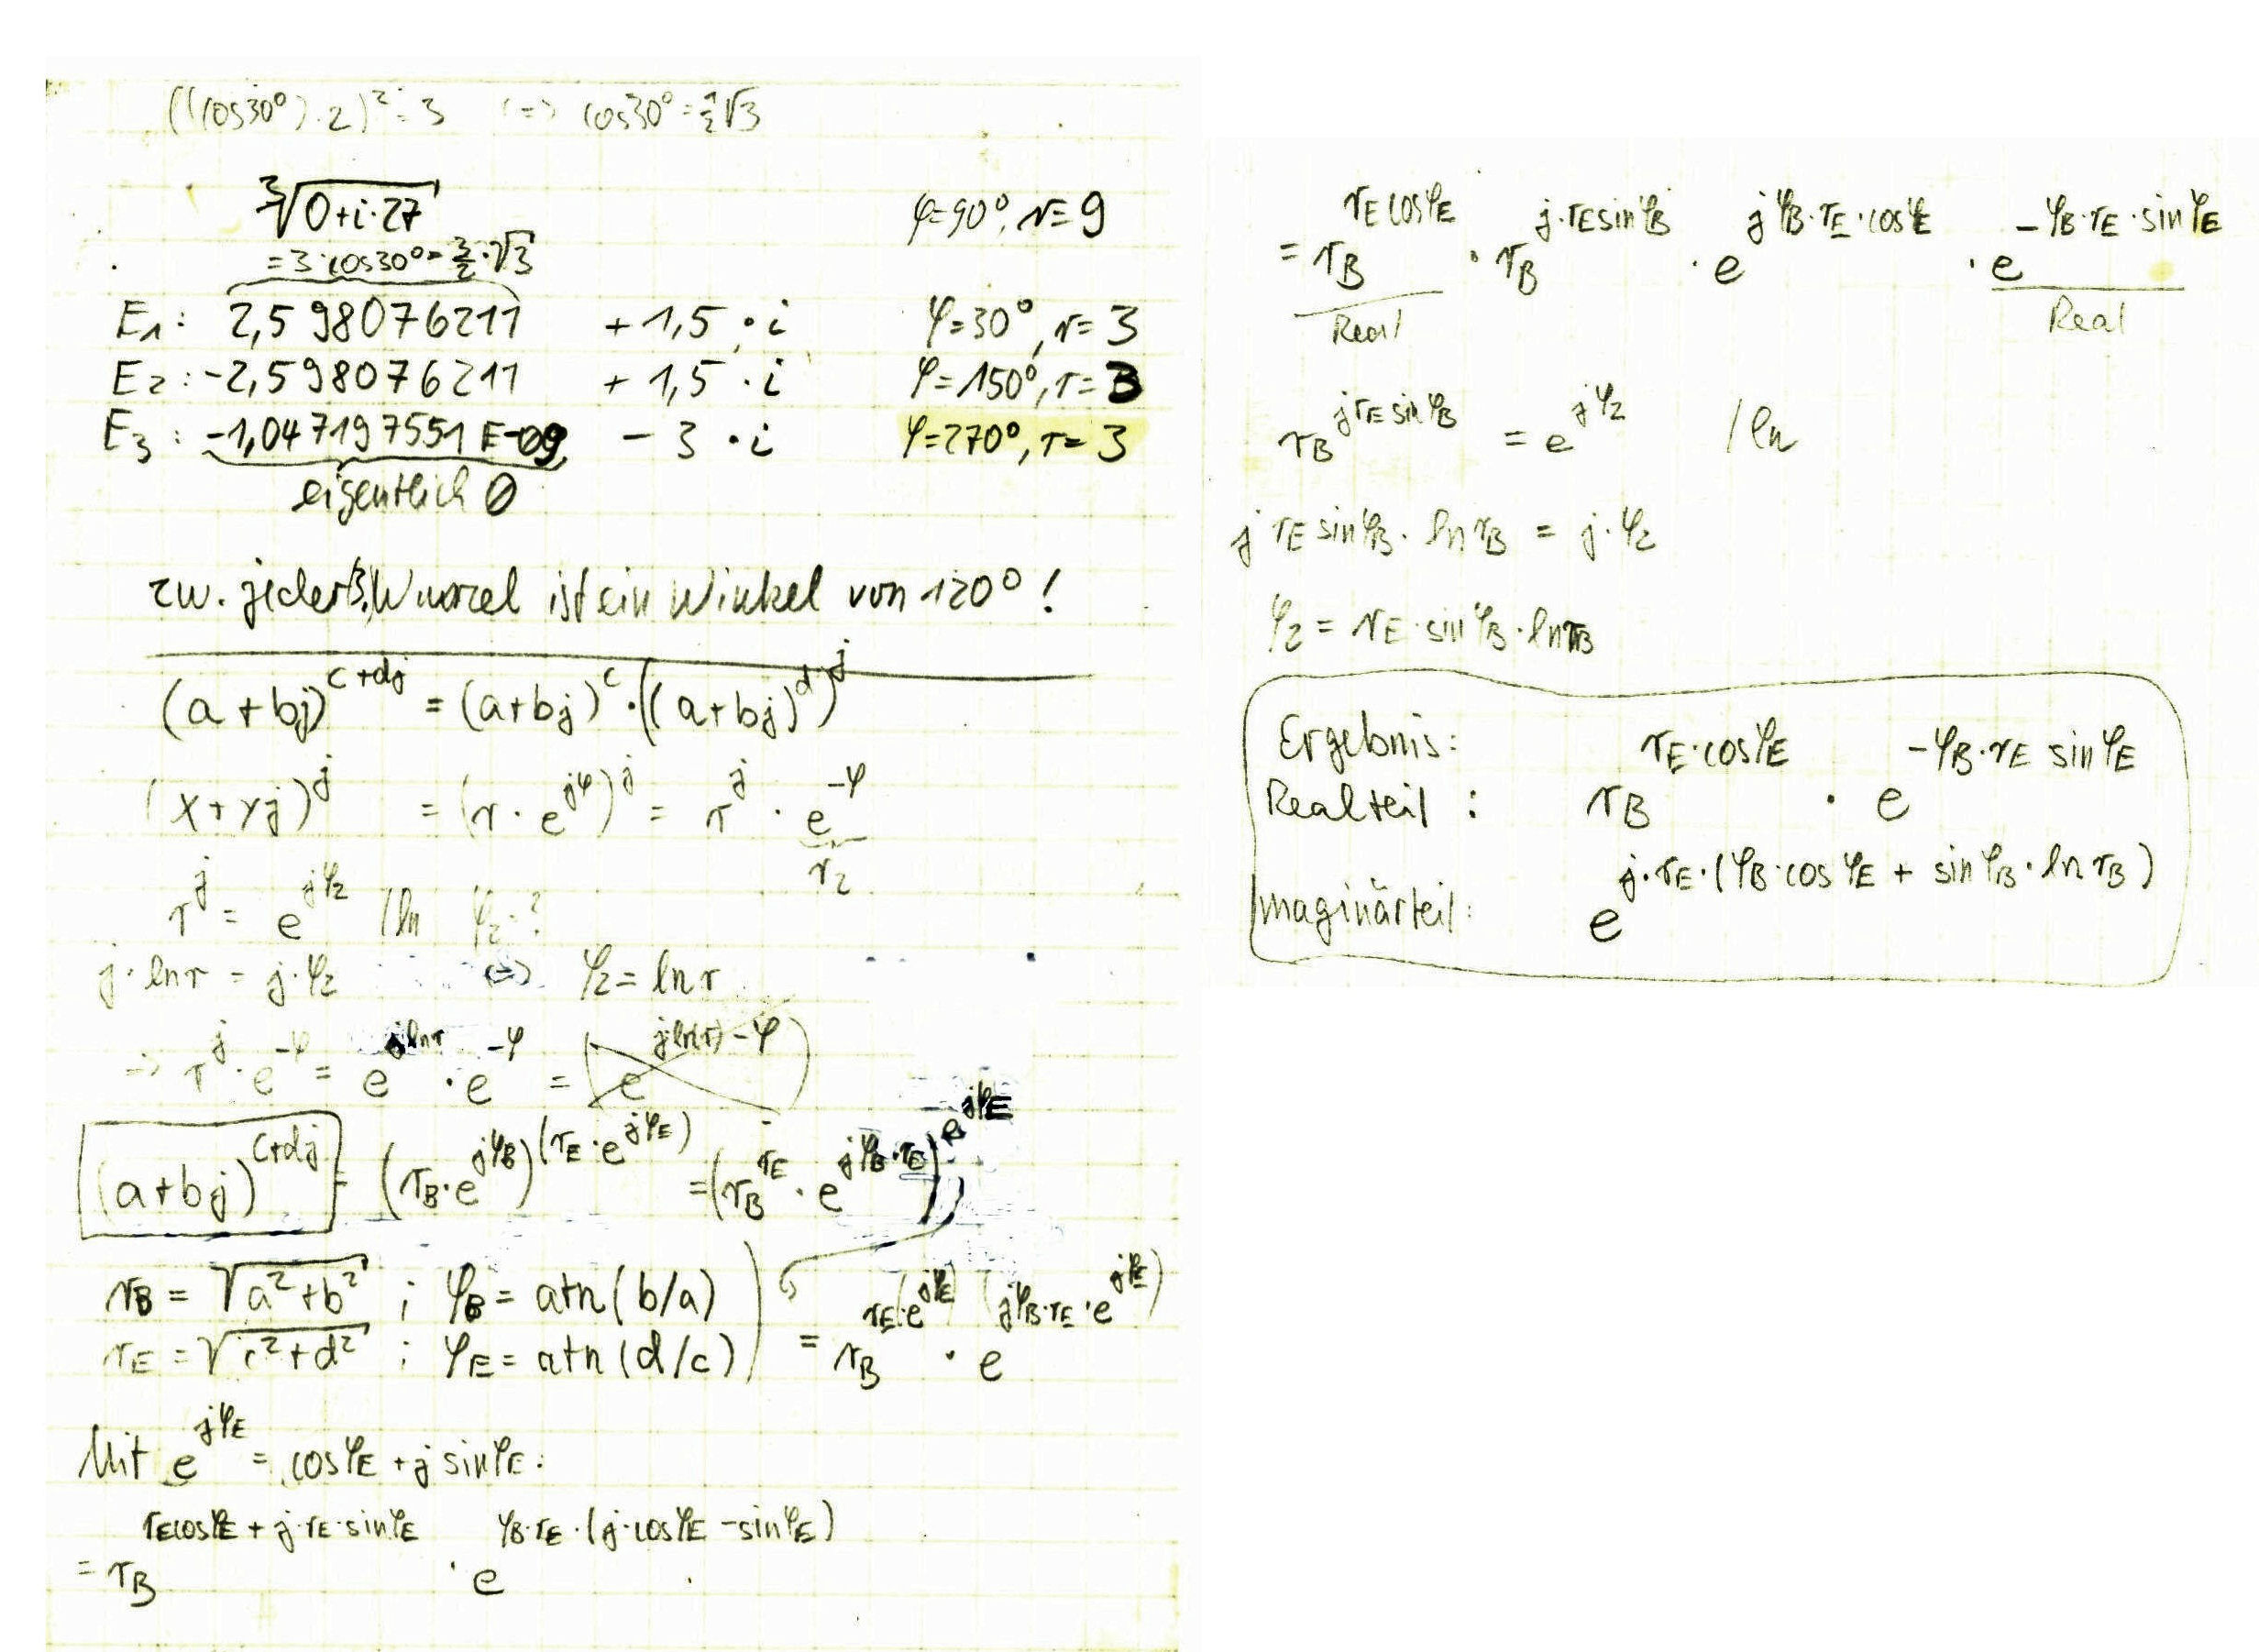 ((cos30°)·2)² = 3 <=> cos30° = ½√3
³√(0+i·27) φ=90°, r=9
=3·cos30° = 3/2·√3
E1: 2,598076211 + 1,5·i φ=30°, r=3
E2: -2,598076211 + 1,5·i φ=150°, r=3
E3: -1,047197551 E-09 - 3·i φ=270°, r=3
eigentlich 0
zw. jeder 3. Wurzel ist ein Winkel von 120°!
(a+bj)^(c+dj) = (a+bj)^c · ((a+bj)^d)^j
(x+yj)^j = (r·e^(jφ))^j = r^j · e^(-φ)
r2
r^j = e^(jφ2) /ln φ2?
j·ln r = j·φ2 <=> φ2 = ln r
=> r^j · e^(-φ) = e^(j ln r) · e^(-φ) = (e^(j ln(r) - φ))
(a+bj)^(c+dj) = (rB·e^(jφB))^(rE·e^(jφE)) = (rB^rE · e^(jφB·rE))^(e^(jφE))
rB = √(a²+b²) ; φB = atn(b/a)
rE = √(c²+d²) ; φE = atn(d/c)
= rB^(rE·e^(jφE)) · e^(jφB·rE·e^(jφE))
Mit e^(jφE) = cosφE + j sinφE:
= rB^(rE cosφE + j·rE·sinφE) · e^(φB·rE·(j·cosφE - sinφE))
= rB^(rE cosφE) · rB^(j·rE sinφB) · e^(jφB·rE·cosφE) · e^(-φB·rE·sinφE)
Real Real
rB^(j rE sinφB) = e^(jφ2) /ln
j rE sinφB · ln rB = j·φ2
φ2 = rE·sinφB·ln rB
Ergebnis:
Realteil: rB^(rE·cosφE) · e^(-φB·rE sinφE)
Imaginärteil: e^(j·rE·(φB·cosφE + sinφB·ln rB))